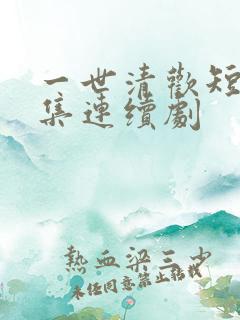 一世清歡短
集連續劇
熱血梁三少
未经同意禁止转载